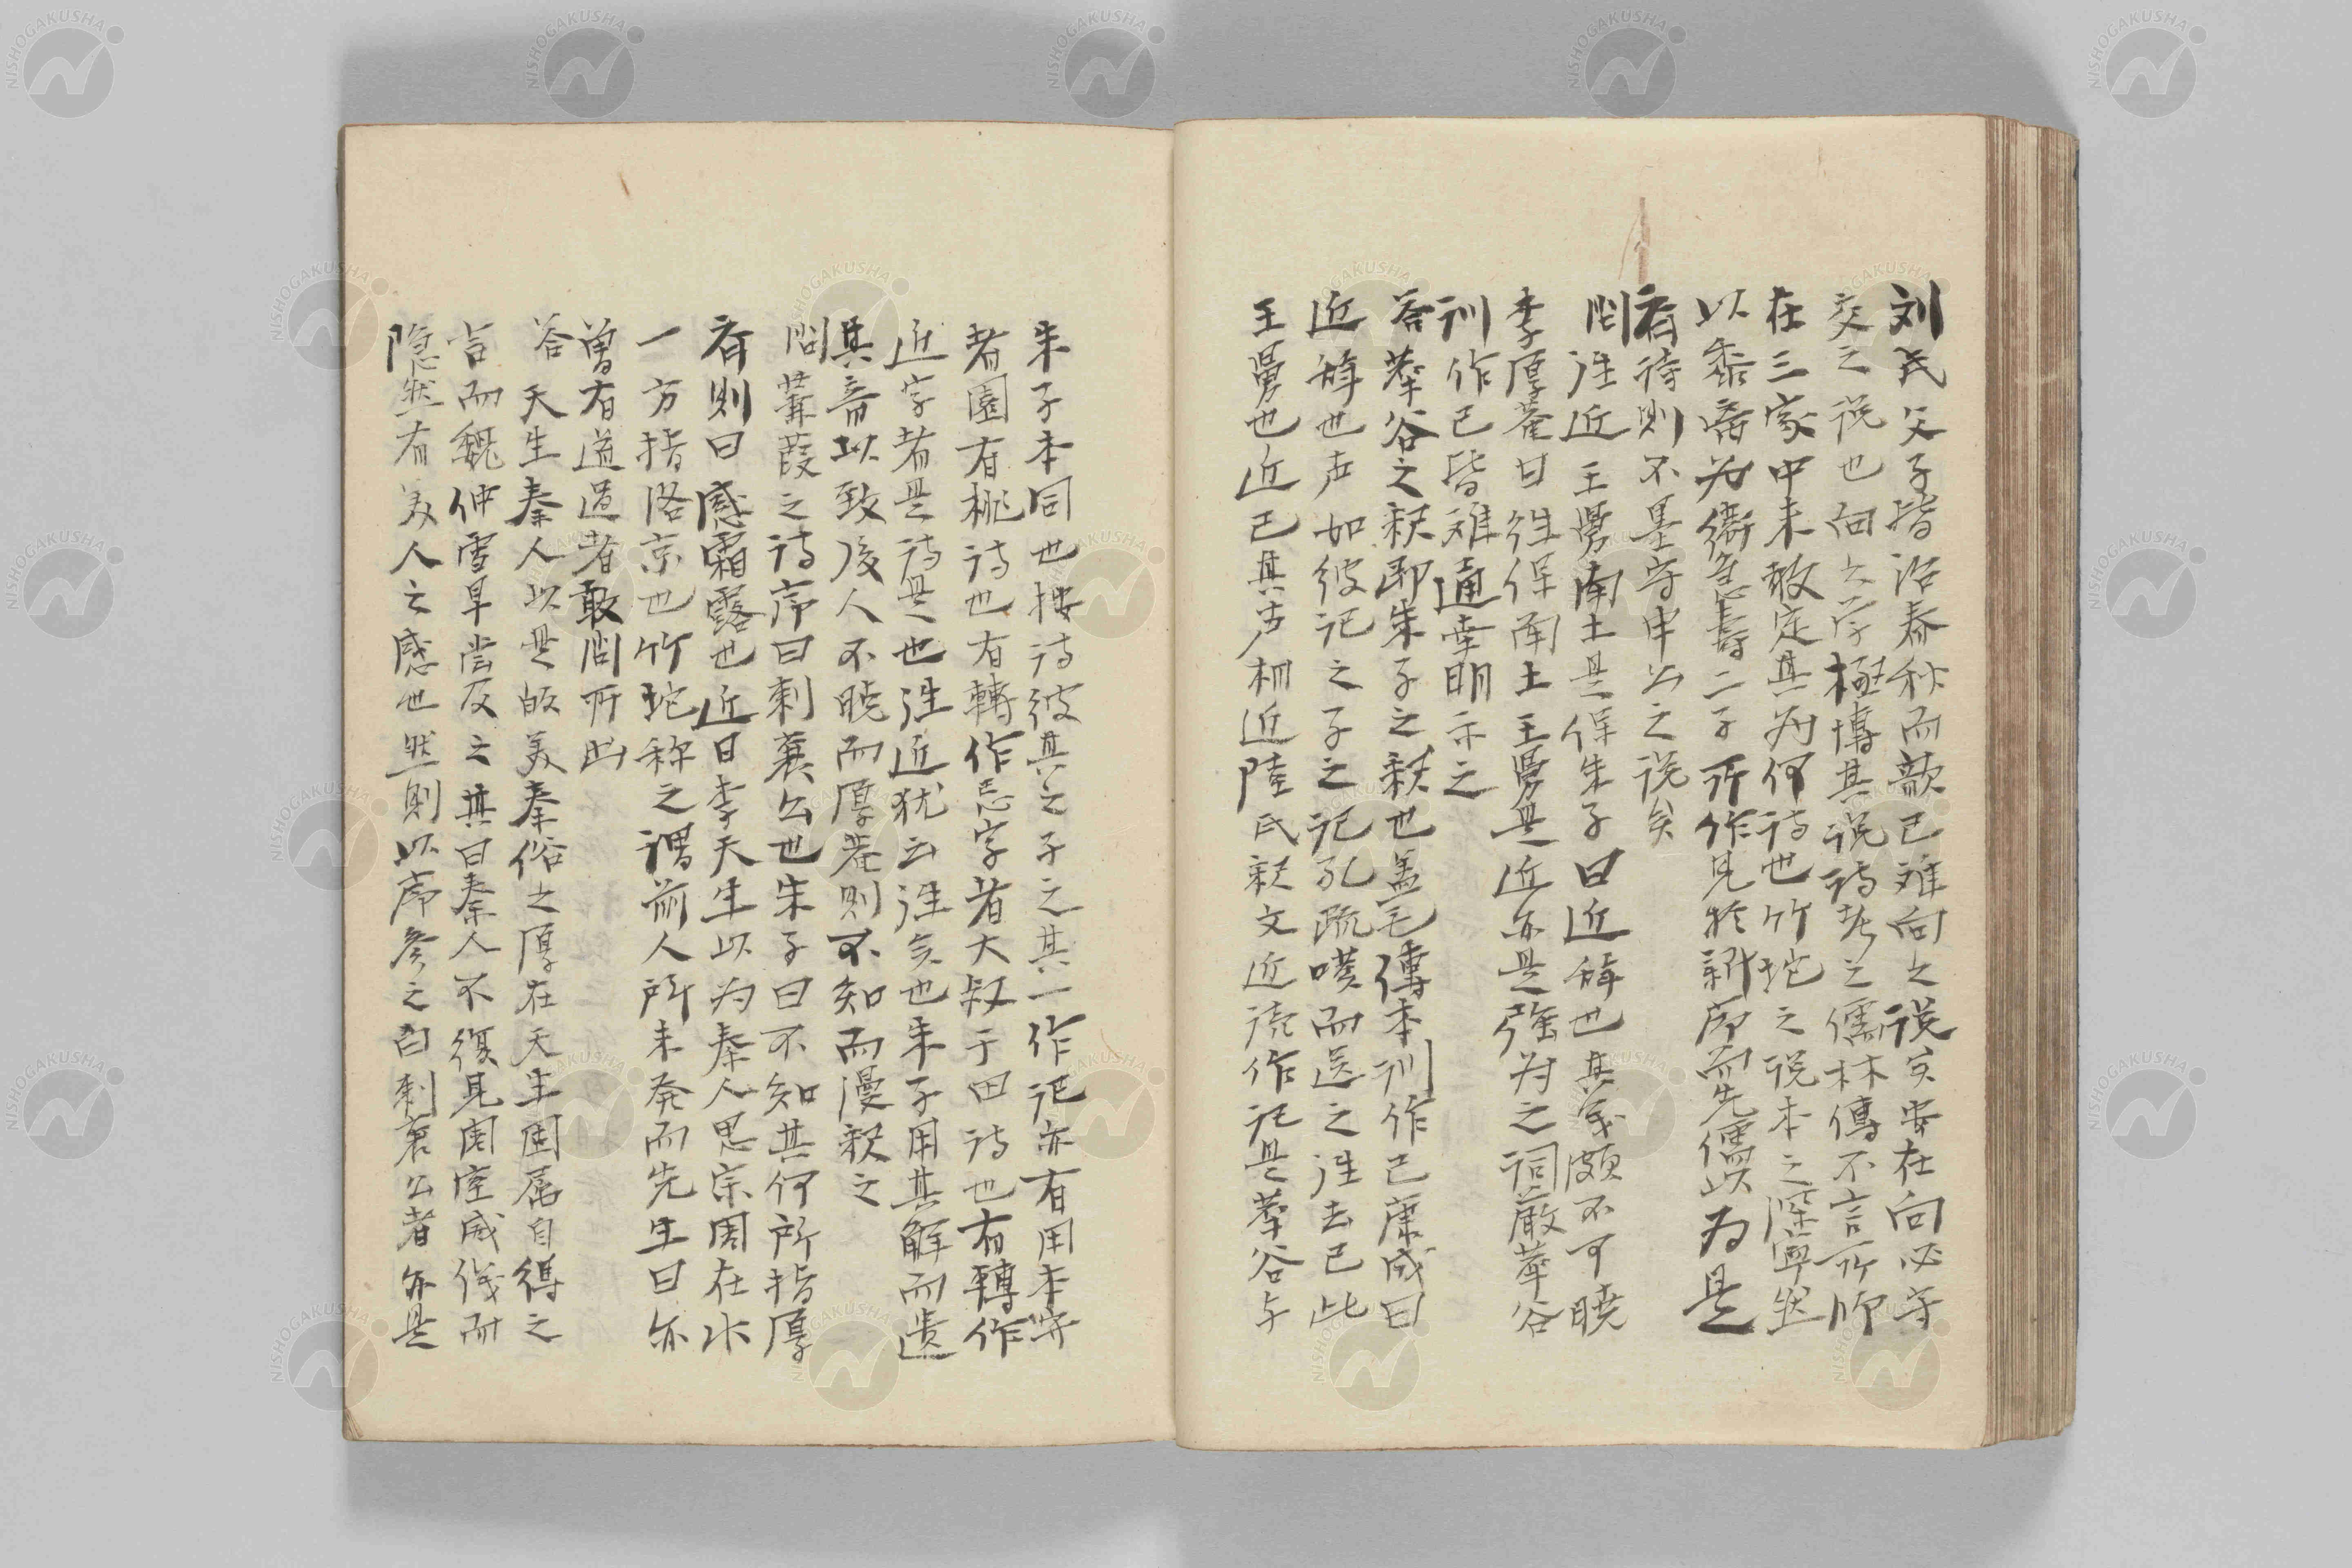 刘氏父子皆治春秋而歆已難向之説矣安在向必守
交之説也向之学極博其説詩考之儒林傳不言所师
在三家中未敢定其为何詩也竹垞之説本之深寧然
以黍離为衛急壽二子所作見於新序而先儒以为是
有待則不墨守申公之説矣
問注近王舅南土是保朱子曰近辞也其義頗不可暁
李厚菴曰往保南土王舅是近亦是强为之詞嚴華谷
训作已皆难通幸明示之
答華谷之釈即朱子之釈也盖毛傳本训作已康成曰
近辞也声如彼记之子之记孔疏嘆而送之往去已此
王舅也近已其声相近陸氏釈文近读作记是華谷与
朱子本同也按詩彼其之子之其一作记亦有用本字
者園有桃詩也有轉作忌字者大叔于田詩也有轉作
近字者是詩是也往近犹云往矣也朱子用其解而遗
其音以致後人不暁而厚菴則不知而漫釈之
問蒹葭之詩序曰刺襄公也朱子曰不知其何所指厚
齋則曰感霜露也近日李天生以为秦人思宗周在水
一方指洛京也竹垞称之謂前人所未発而先生曰亦
曾有道過者敢問所出
答天生秦人以是故美秦俗之厚在天生固属自得之
言而魏仲雪早尝及之其曰秦人不復見周室威仪而
隐然有美人之感也然則以序参之即刺襄公者亦是